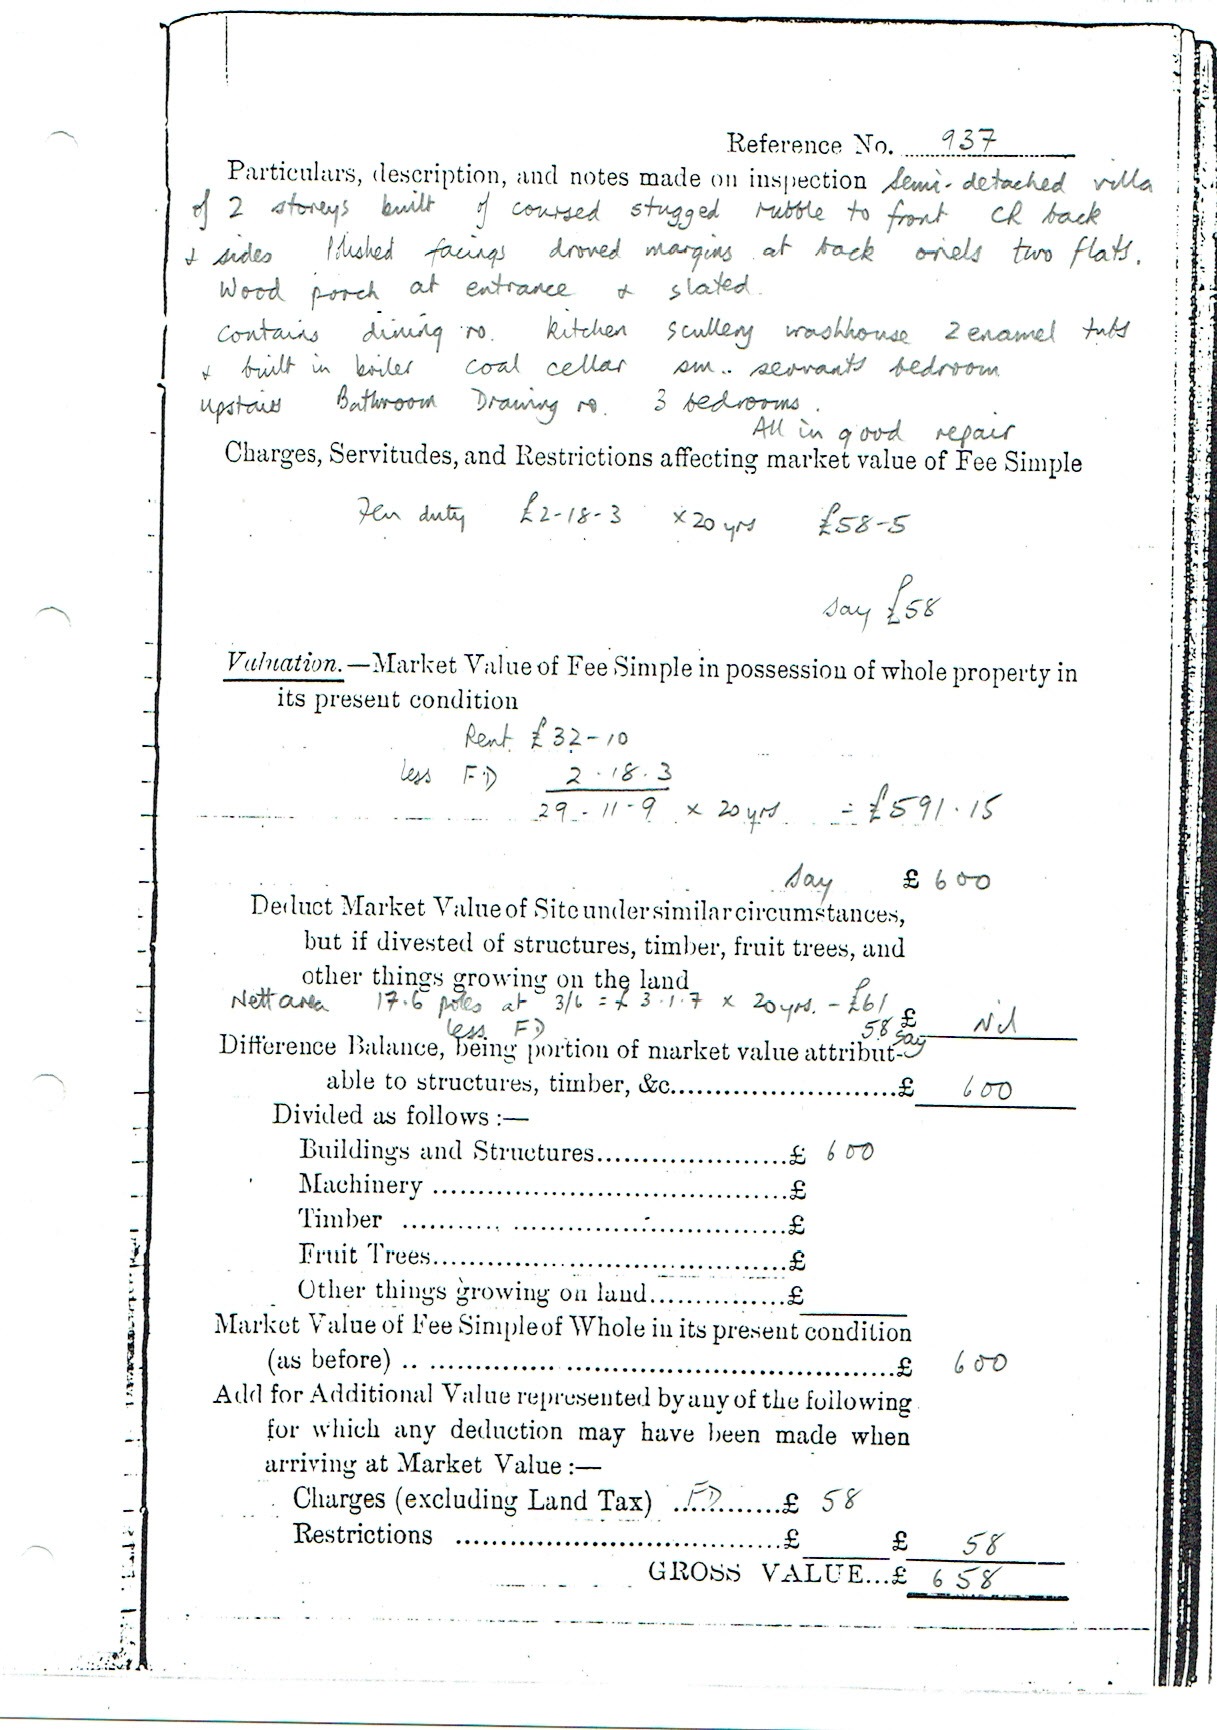 Reference No. 937
Particulars, description, and notes made on inspection Semi-detached villa
of 2 storeys built of coursed stugged rubble to front CR back
& sides Polished facings droved margins at back oriels two flats.
Wood porch at entrance & slated.
Contains dining ro. kitchen scullery washhouse 2 enamel tubs
& built in boiler coal cellar sm.. servants bedroom
Upstairs Bathroom Drawing ro. 3 bedrooms.
All in good repair
Charges, Servitudes, and Restrictions affecting market value of Fee Simple
Feu duty £2-18-3 x 20 yrs £58-5
say £58
Valuation.—Market Value of Fee Simple in possession of whole property in
its present condition
Rent £32-10
less F.D 2.18.3
29-11-9 x 20 yrs = £591.15
Say £600
Deduct Market Value of Site under similar circumstances,
but if divested of structures, timber, fruit trees, and
other things growing on the land
Nett area 17.6 poles at 3/6 = £3.1.7 x 20 yrs. - £61
less FD 58 say £ Nil
Difference Balance, being portion of market value attribut-
able to structures, timber, &c.........................£ 600
Divided as follows :—
Buildings and Structures.....................£ 600
Machinery .......................................£
Timber .......................................£
Fruit Trees.......................................£
Other things growing on land...............£
Market Value of Fee Simple of Whole in its present condition
(as before) .. ...................................................£ 600
Add for Additional Value represented by any of the following
for which any deduction may have been made when
arriving at Market Value :—
Charges (excluding Land Tax) ..FD.......£ 58
Restrictions ...................................£ £ 58
GROSS VALUE...£ 658